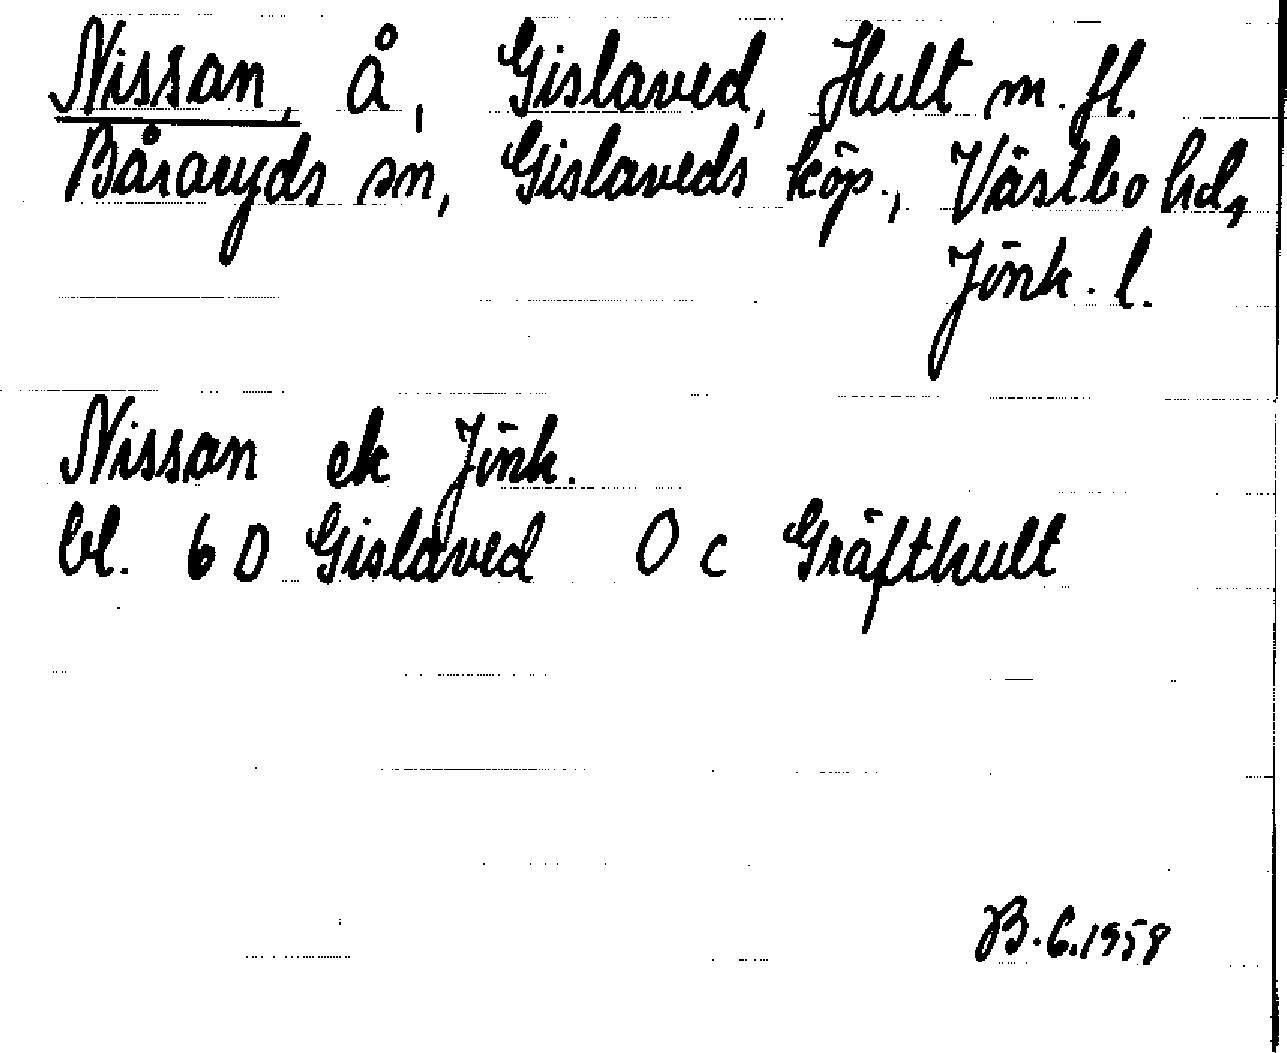 Nissan, å, Gislaved, Hult m. fl.
Båraryds sn, Gislaveds köp., Västbo hd,
Jönk. l.
Nissan ek Jönk.
bl. 6 D Gislaved O c Gräfthult
B.G.1958